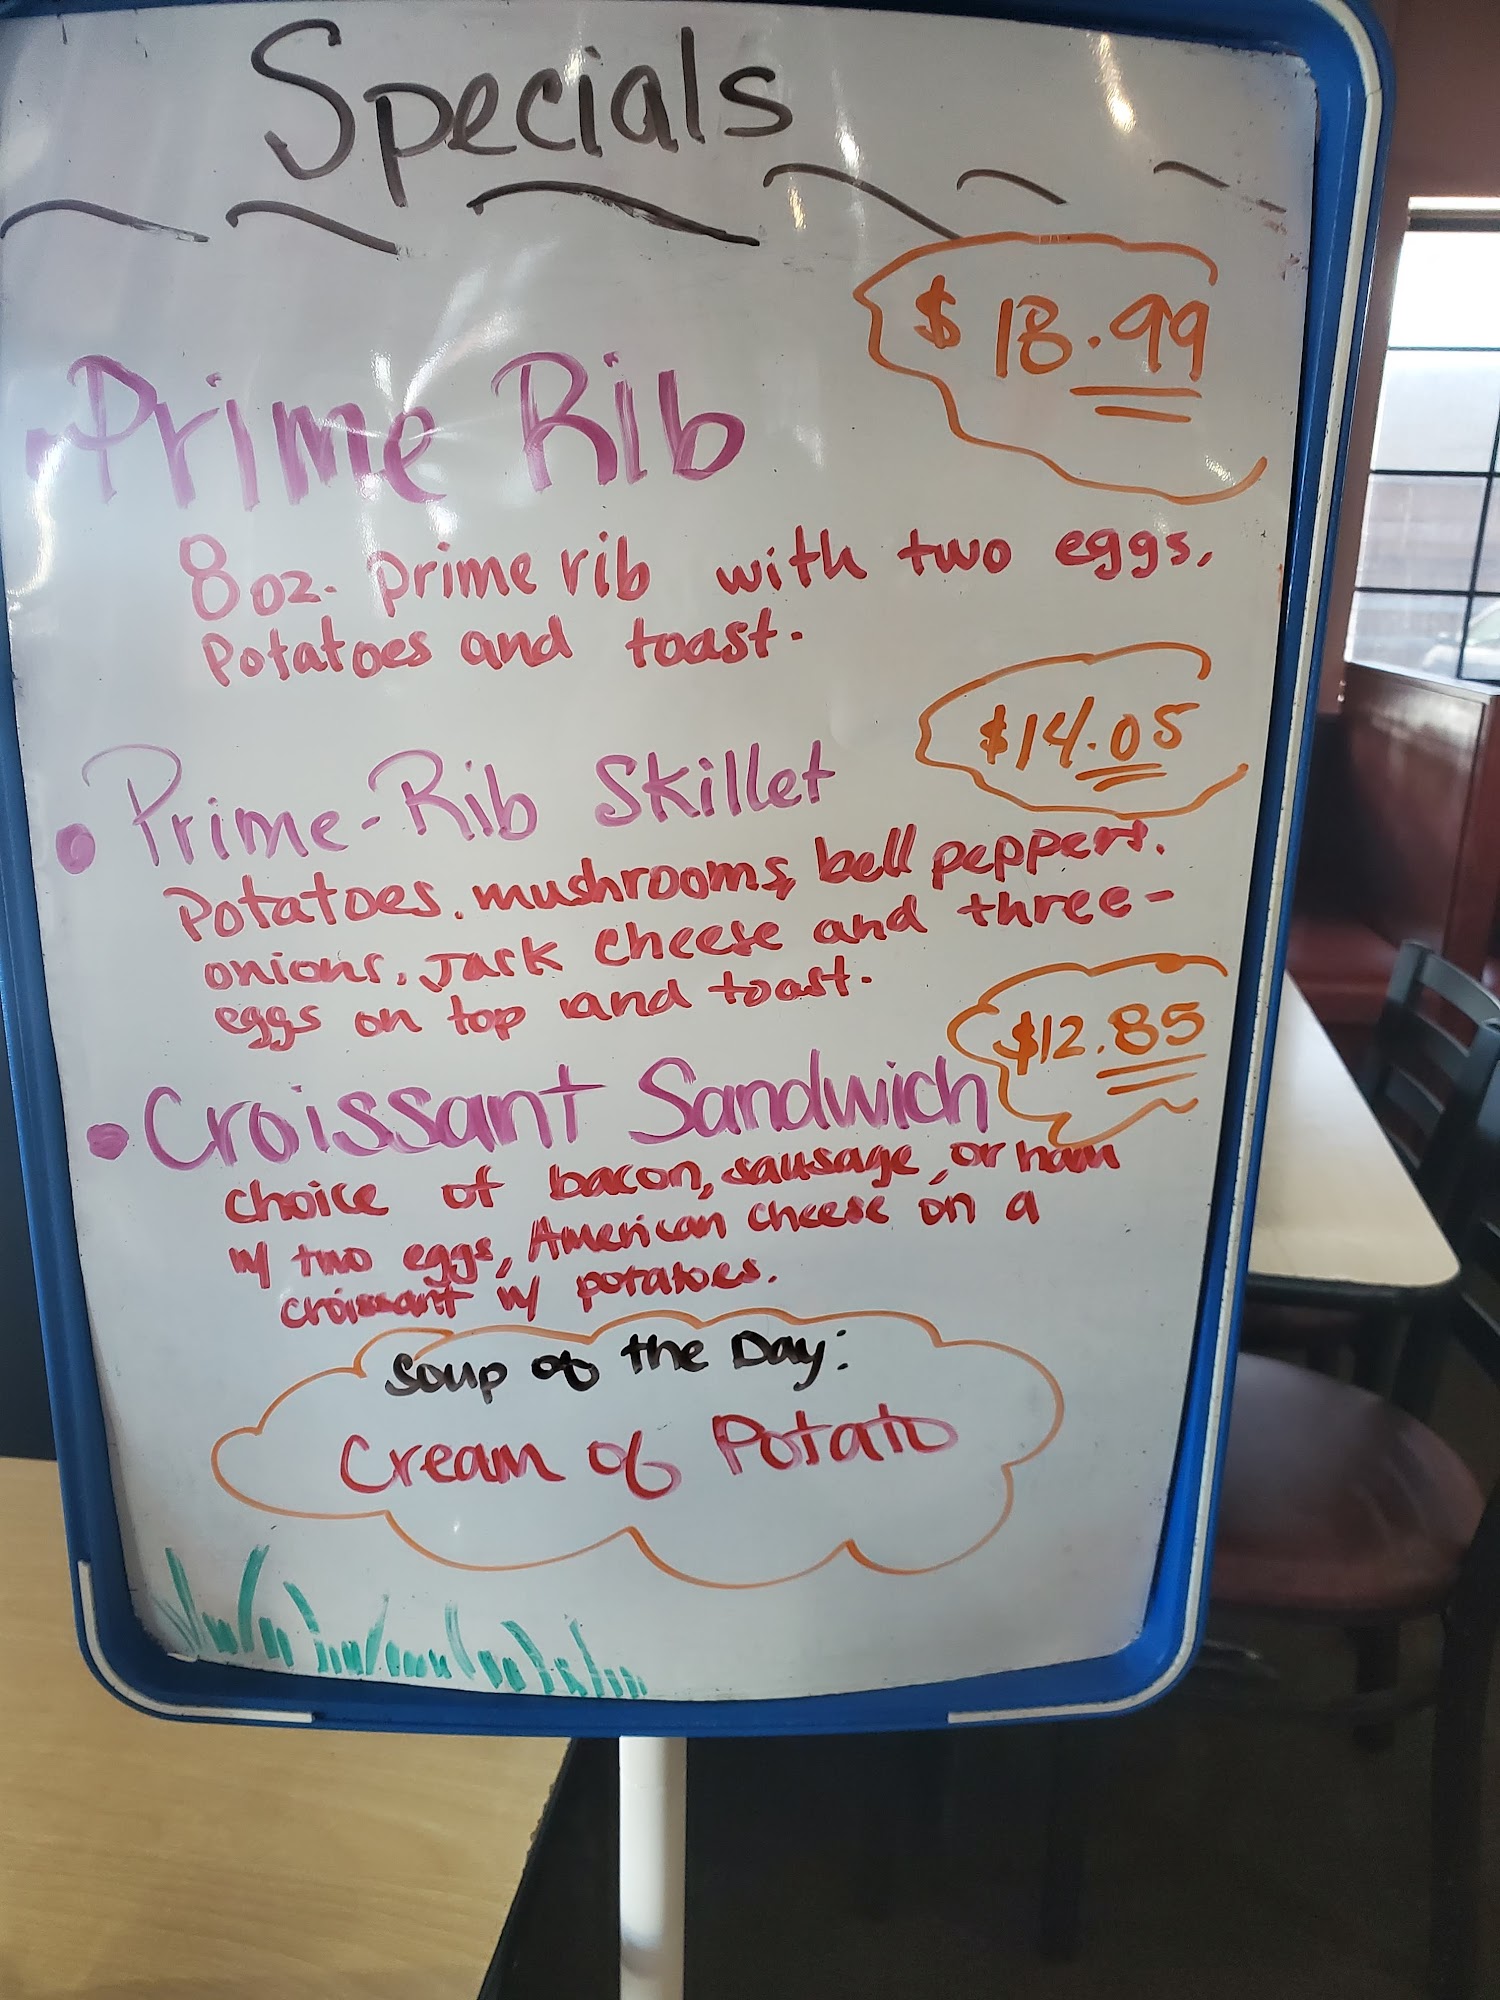 Specials
$18.99
•Prime Rib
8oz. prime rib with two eggs,
Potatoes and toast.
$14.05
• Prime-Rib Skillet
Potatoes, mushrooms, bell peppers,
onions, Jack cheese and three-
eggs on top and toast.
$12.85
• Croissant Sandwich
choice of bacon, sausage, or ham
w/ two eggs, American cheese on a
croissant w/ potatoes.
Soup of the Day:
Cream of Potato